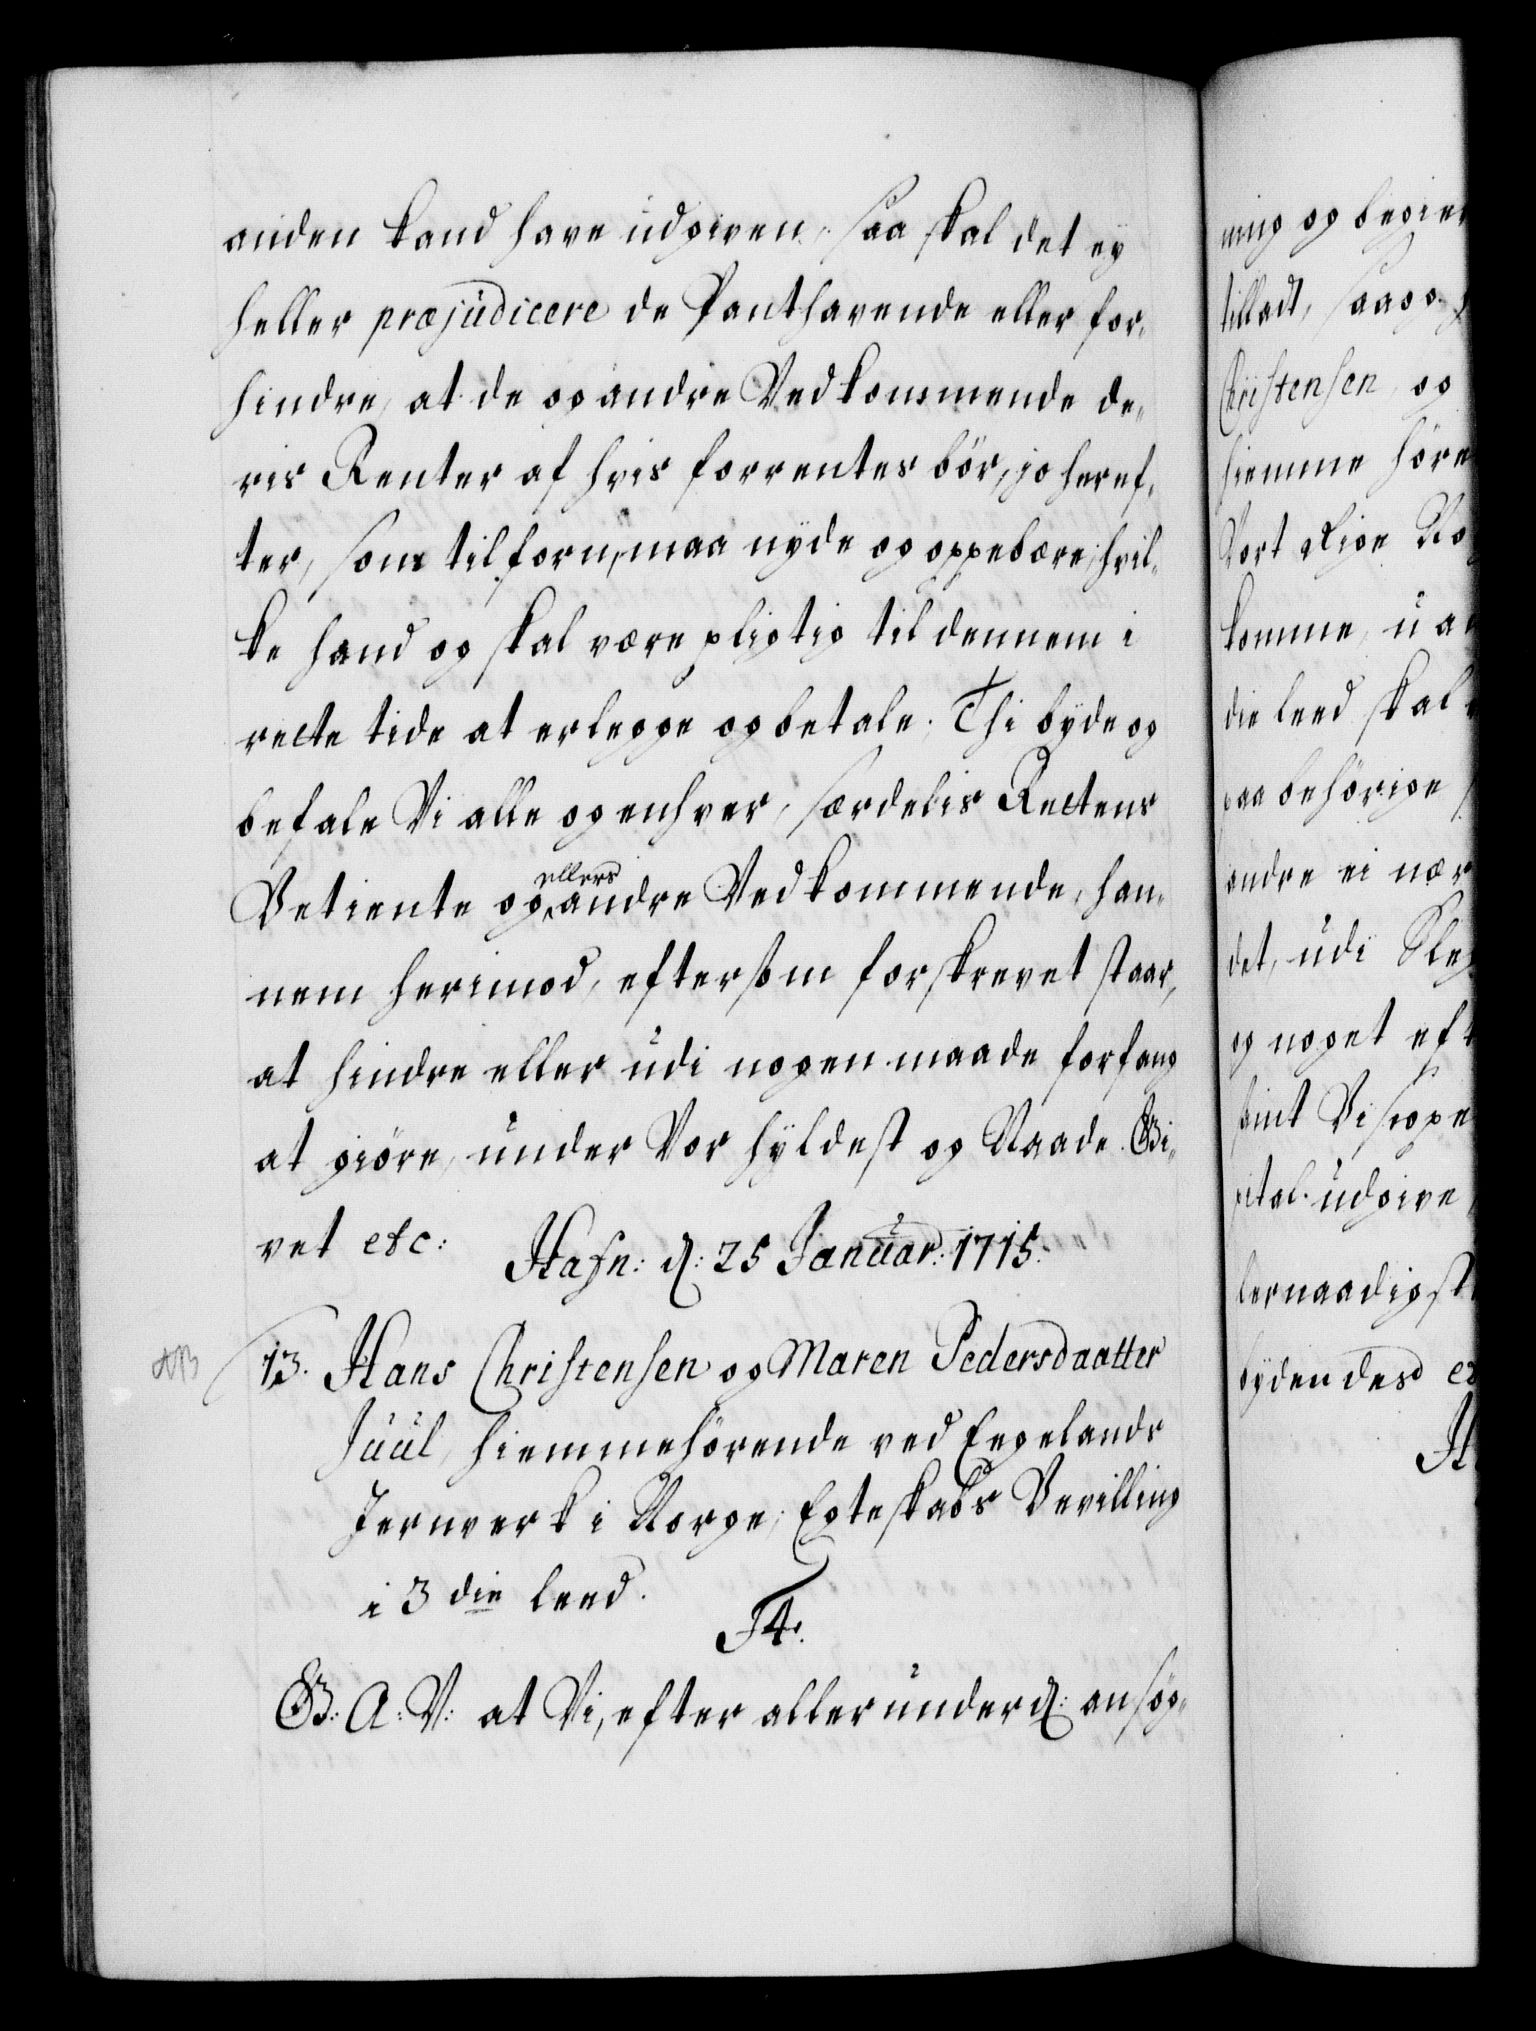 anden kand have udgiven, saa skal det ey
heller præjudicere de Panthavende eller for-
hindre, at de og andre Vedkommende de-
ris Renter af hvis forrentes bör, jo heref-
ter, som tilforn, maa nyde og oppebære, hvil-
ke hand og skal være pligtig til dennem i
rette tide at erlegge og betale. Thi byde og
befale Vi alle og enhver, særdelis Rettens
Betiente og ellers andre Vedkommende, han-
nem herimod, eftersom forskrevet staar,
at hindre eller udi nogen maade forfang
at giöre, under Vor hyldest og Naade. Gi-
vet etc: Hafn: d: 25 Januar: 1715.
13. Hans Christensen og Maren Pedersdaatter
Juul, hiemmehörende ved Eegelands
Jernverk i Norge, Egteskabs Bevilling
i 3 die leed.
F 4.
G: A: V: at Vi, efter allerunderd: ansög-
ning og begier
tilladt, saa og
Christensen, og
hiemme höre
Vort Rige No
komme, ua
die leed skal
paa behörige
andre ei nær
det, udi Sleg
og noget eft
samt Vi
pital. udgive,
lernaadigst
bydendes e
H